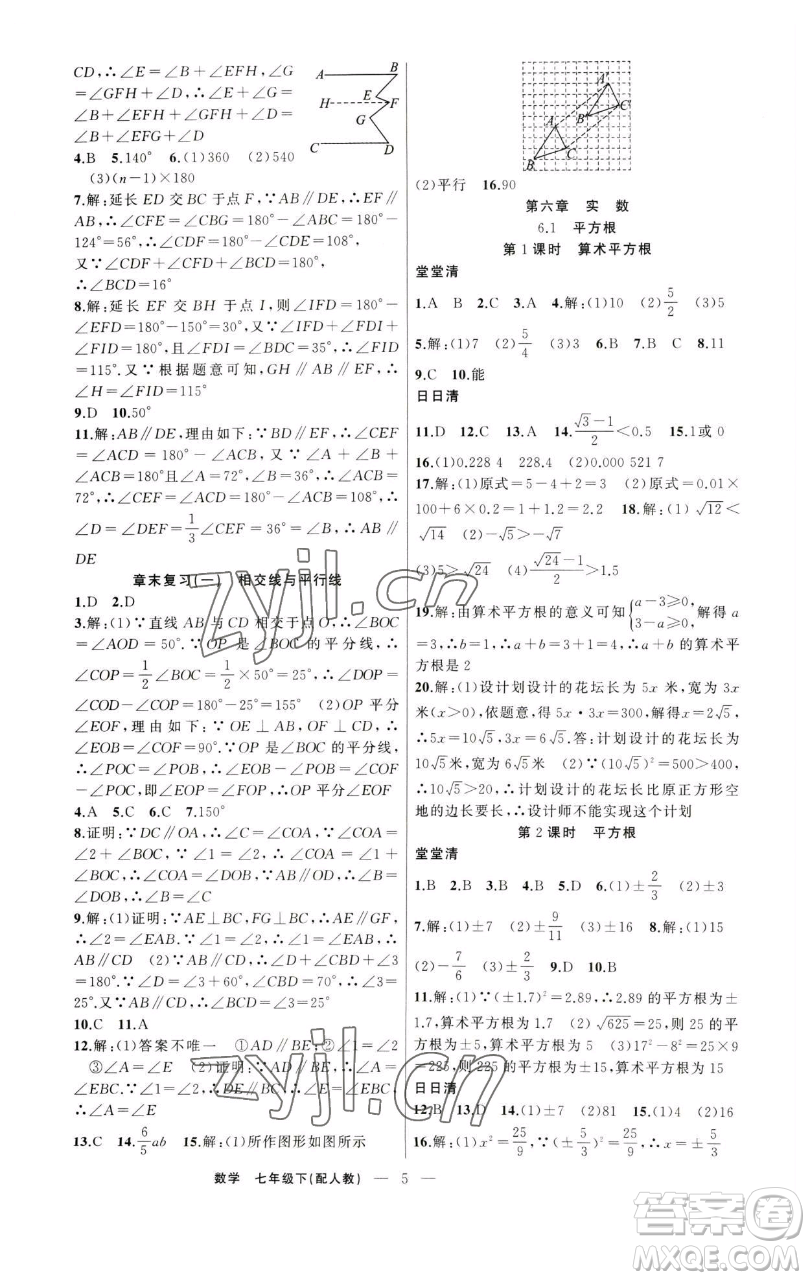 CD,∴∠E=∠B+∠EFH,∠G
=∠GFH+∠D,∴∠E+∠G
=∠B+∠EFH+∠GFH+∠D
=∠B+∠EFG+∠D
A B E H F G C D
4.B 5.140° 6.(1)360 (2)540
(3)(n-1)×180
7.解:延长ED交BC于点F,∵AB∥DE,∴EF∥
AB,∴∠CFE=∠CBG=180°-∠ABC=180°-
124°=56°,∠CDF=180°-∠CDE=108°,
又∵∠CDF+∠CFE+∠BCD=180°,
∴∠BCD=16°
8.解:延长EF交BH于点I,则∠IFD=180°-
∠EFD=180°-150°=30°,又∵∠IFD+∠FDI+
∠FID=180°,且∠FDI=∠BDC=35°,∴∠FID
=115°.又∵根据题意可知,GH∥AH∥EF,∴
∠H=∠FID=115°
9.D 10.50°
11.解:AB∥DE,理由如下:∵BD∥EF,∴∠CEF
=∠ACD=180°-∠ACB,∵∠A+∠B+
∠ACB=180°且∠A=72°,∠B=36°,∴∠ACB=
72°,∴∠CEF=∠ACD=180°-∠ACB=108°,∴
∠D=∠DEF=1/3∠CEF=36°=∠B,∴AB∥
DE
章末复习(一) 相交线与平行线
1.D 2.D
3.解:(1)∵直线AB与CD相交于点O,∴∠BOC
=∠AOD=50°.∵OP是∠BOC的平分线,∴
∠COP=1/2∠BOC=1/2×50°=25°,∴∠DOP=
∠COD-∠COP=180°-25°=155° (2)OP平分
∠EOF,理由如下:∵OE⊥AB,OF⊥CD,∴
∠EOB=∠COF=90°.∵OP是∠BOC的平分线,
∴∠POC=∠POB,∴∠EOB-∠POB=∠COF
-∠POC,即∠EOP=∠FOP,∴OP平分∠EOF
4.A 5.C 6.C 7.150°
8.证明:∵DC∥OA,∴∠C=∠COA,∵∠COA=
∠2+∠BOC,∵∠1=∠2,∴∠COA=∠1+
∠BOC,∴∠BOD=∠COA,∴∠C=∠BOD,∵∠B=
∠DOB,∴∠B=∠C
9.解:(1)证明:∵AE⊥BC,FG⊥BC,∴AE∥GF,
∴∠2=∠EAB.∵∠1=∠2,∴∠1=∠EAB,∴
AB∥CD (2)∵AB∥CD,∴∠D+∠CBD+∠3=
180°.∵∠D=∠3+60°,∠CBD=70°,∴∠3=
25°.又∵AB∥CD,∴∠C=∠3=25°
10.C 11.A
12.解:(1)答案不唯一 ①AD∥BE;②∠1=∠2
③∠A=∠E (2)证明:∵AD∥BE,∴∠A=
∠EBC.∵∠1=∠2,∴DE∥AC,∴∠E=∠EBC,
∴∠A=∠E
13.C 14.6/5ab 15.解:(1)所作图形如图所示
A' B' C' A B C
(2)平行 16.90
第六章 实 数
6.1 平方根
第1课时 算术平方根
堂堂清
1.A B 2.C 3.A 4.解:(1)10 (2)5/2 (3)5
5.解:(1)7 (2)5/4 (3)3 6.B 7.B C 8.11
9.C 10.能
日日清
11.D 12.C 13.A 14.(√3-1)/2<0.5 15.1或0
16.(1)0.228 4 228.4 (2)0.000 521 7
17.解:(1)原式=5-4+2=3 (2)原式=0.01×
100+6×0.2=1+1.2=2.2 18.解:(1)√12<
√14 (2)-√5>-√7
(3)5>√24 (4)(√24-1)/2>1.5
19.解:由算术平方根的意义可知{a-3≥0, 3-a≥0,解得a
=3,∴b=1,∴a+b=3+1=4,∴a+b的算术平
方根是2
20.解:(1)设计划设计的花坛长为5x米,宽为3x
米(x>0),依题意,得5x·3x=300,解得x=2√5,
∴5x=10√5,3x=6√5.答:计划设计的花坛长为
10√5米,宽为6√5米 (2)∵(10√5)²=500>400,
∴10√5>20,∴计划设计的花坛长比原正方形空
地的边长要长,∴设计师不能实现这个计划
第2课时 平方根
堂堂清
1.B 2.B 3.A 4.D 5.B 6.(1)±2/3 (2)±3
7.解:(1)±7 (2)±9/11 (3)±16 8.解:(1)15
(2)-7/6 (3)±2/3 9.D 10.B
11.解:(1)∵(±1.7)²=2.89,∴2.89的平方根为±
1.7,算术平方根为1.7 (2)√625=25,则25的平
方根为±5,算术平方根为5 (3)17²-8²=25×9
=225,则225的平方根为±15,算术平方根为15
日日清
12.B 13.D 14.(1)±2 (2)81 15.(1)4 (2)16
16.解:(1)x²=25/9,∵(±5/3)²=25/9,∴x=±5/3
数学 七年级下(配人教) — 5 —
zyjl.cn
zyjl.cn
答案圈
MXQE.COM